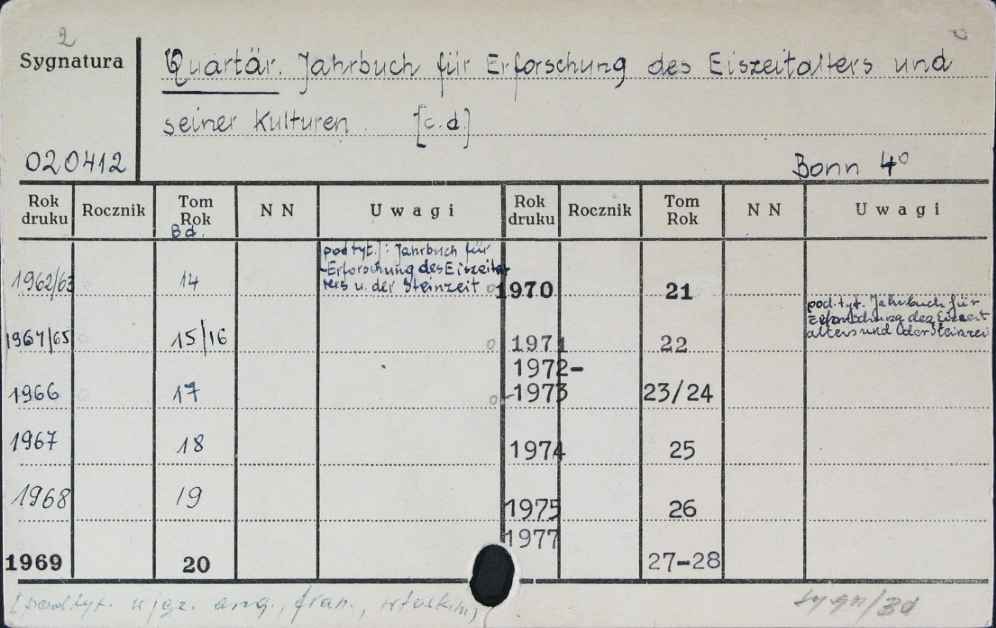 2
Sygnatura
Quartär. Jahrbuch für Erforschung des Eiszeitalters und
seiner Kulturen. [c.d.]
020412
Bonn 4°
Rok druku Rocznik Tom Rok N N Uwagi Rok druku Rocznik Tom Rok N N Uwagi
Bd.
podtyt.: Jahrbuch für
Erforschung des Eiszeital-
ters u. der Steinzeit
1962/63 14
1970 21
pod.tyt. Jahrbuch für
Erforschung des Eiszeit
alters und der Steinzei
1964/65 15/16
1971 22
1966 17
1972-
-1973 23/24
1967 18
1974 25
1968 19
1975 26
1969 20
1977 27-28
[podtyt. w jęz. ang., fran.,
sygn/Bd